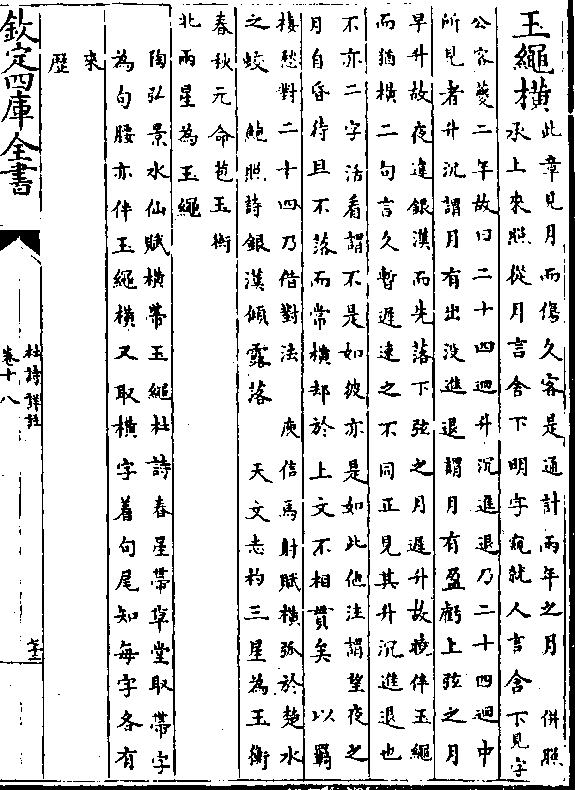 玉繩橫此章見月而傷久客是通計兩年之月　併照
承上來照從月言舍下明字窺就人言含下見字
公客夔二年故曰二十四迴升沉進退乃二十四迴中
所見者升沉謂月有出没進退謂月有盈虧上弦之月
早升故夜進銀漢而先落下弦之月遲升故曉伴玉繩
而猶橫二句言久暫遲速之不同正見其升沉進退也
不亦二字活看謂不是如彼亦是如此他注謂望夜之
月自昏待旦不落而常橫却於上文不相貫矣　以羇
棲愁對二十四乃借對法　庾信馬射賦橫弧於楚水
之蛟　鮑照詩銀漢傾露落　天文志杓三星為玉衡
春秋元命苞玉衡
北兩星為玉繩
陶弘景水仙賦橫帶玉繩杜詩春星帶草堂取帶字
為句腰亦伴玉繩橫又取橫字着句尾知每字各有
來
歷
欽定四庫全書
杜詩詳註
卷十八